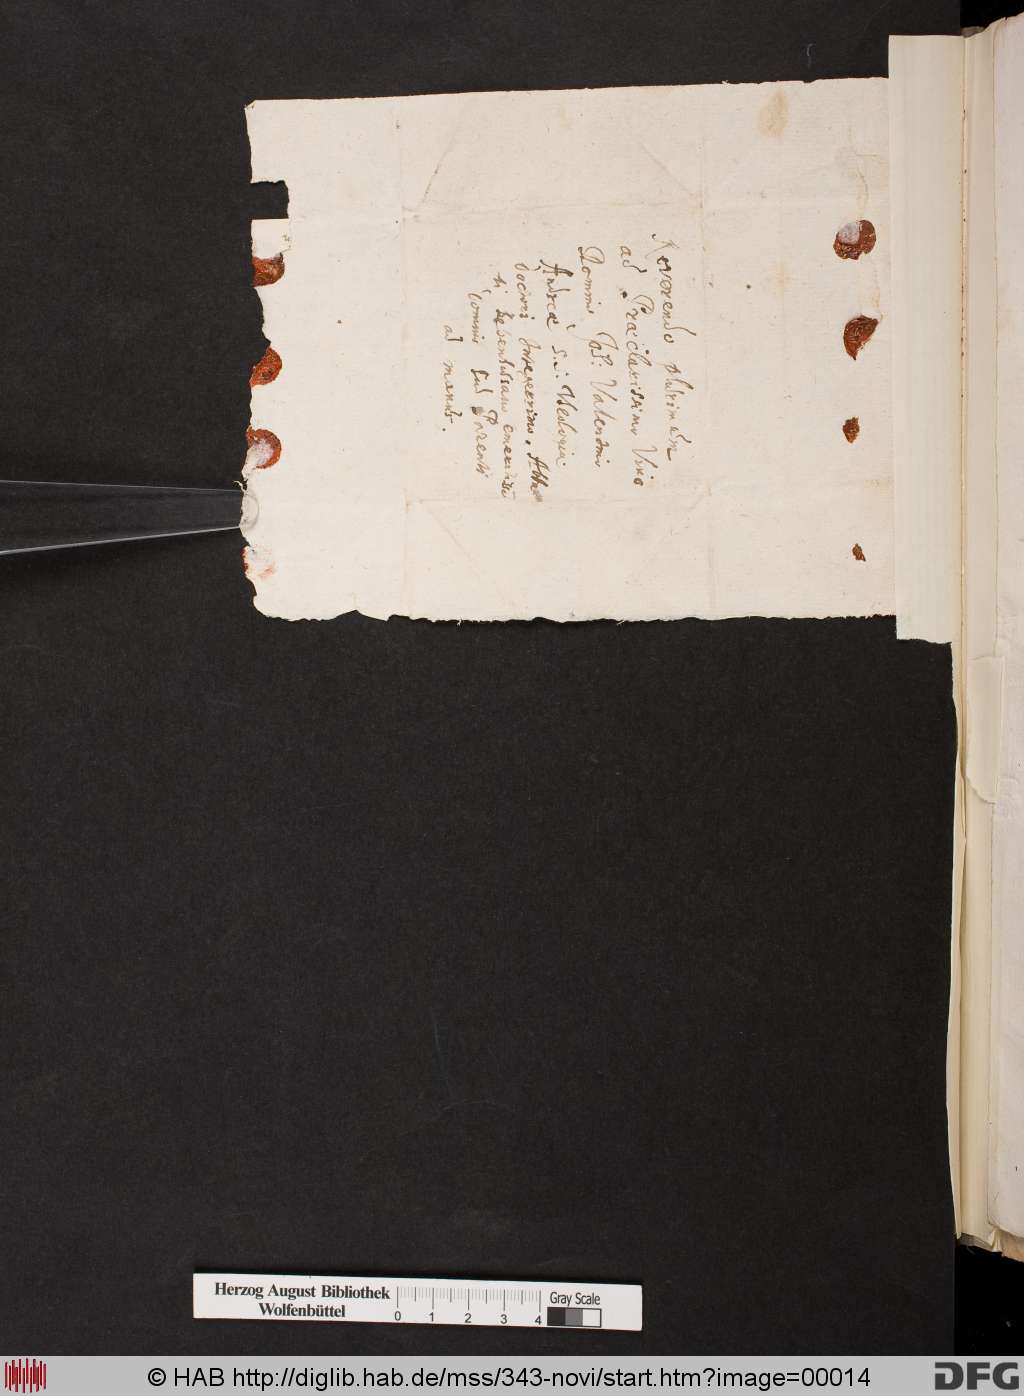 Reverendo plurimùm
ad Præclarissimo Viro
Domino Joh: Valentino
Andreæ S.S. Theologiæ
Doctori Integerrimo, Abba
ti Bebenhusano
Domino suo Parenti
ad manus.
Herzog August Bibliothek
Wolfenbüttel
0 1 2 3 4
Gray Scale
© HAB http://diglib.hab.de/mss/343-novi/start.htm?image=00014
DFG